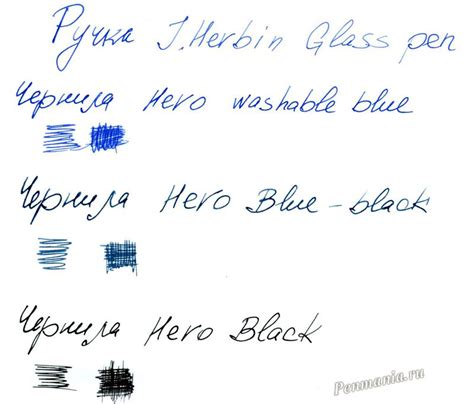 Ручка J.Herbin Glass pen
Чернила Hero washable blue
Чернила Hero Blue-black
Чернила Hero Black
Penmania.ru